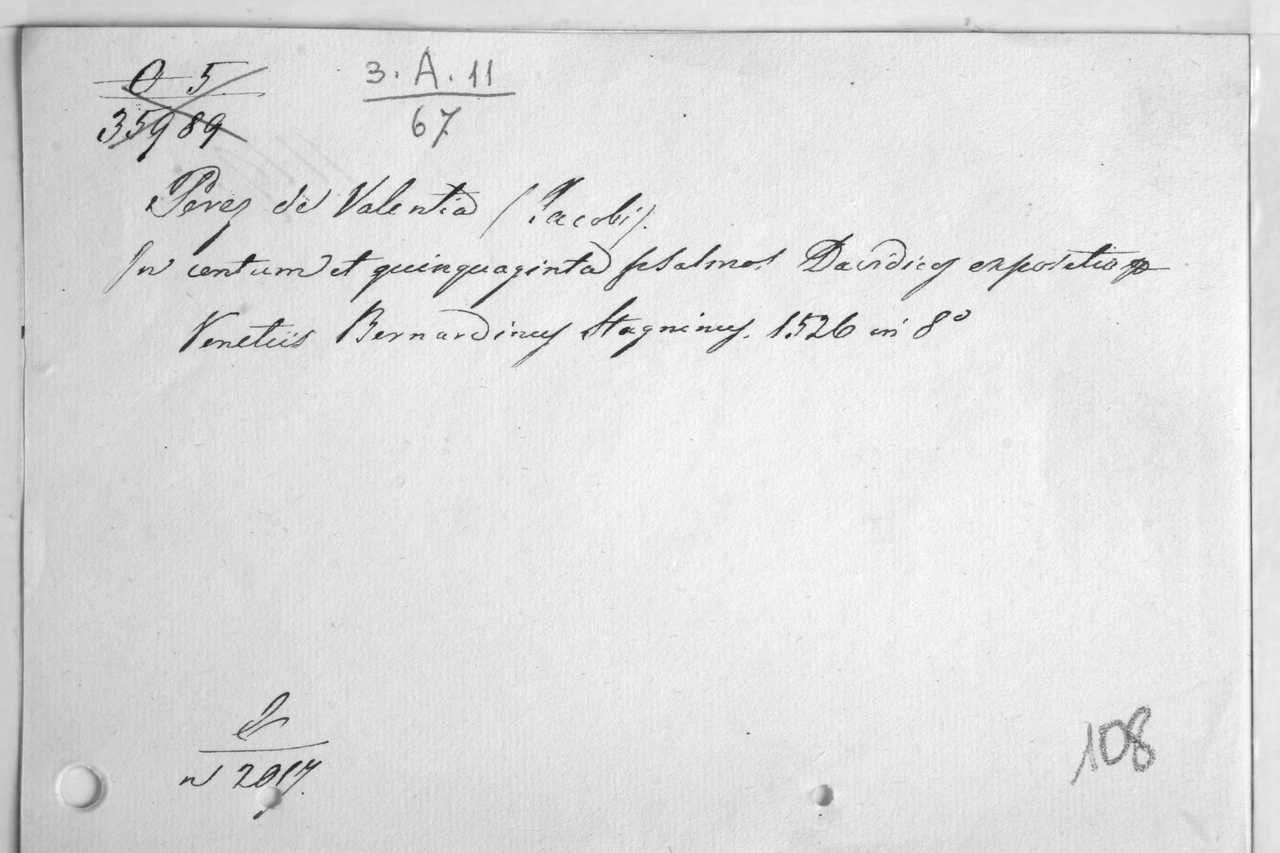 O 5
35989
3. A. 11
67
Perez de Valentia (Jacobi).
In centum et quinquaginta psalmos Davidicos expositio
Venetiis Bernardinus Stagninus. 1526 in 8º
n 2017.
108